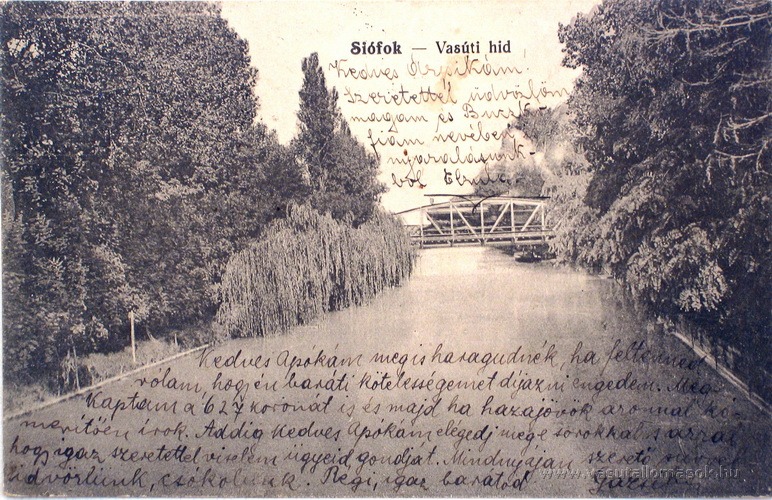 Siófok — Vasúti hid
Kedves Árpikám!
Szeretettel üdvözlöm
magam és Buczk-
fiám nevében
nyaralásunk-
ból
Kedves Apókám megis haragudnék, ha feltennéd
rólam, hogy én baráti kötelességemet díjazni engedem. Meg-
kaptam a 627 koronát is és majd ha hazajövök azonnal
merítően írok. Addig Kedves Apókám elégedj meg e sorokkal s azzal
hogy igaz szeretettel viselem ügyeid gondját. Mindnyájan szerető
üdvözlünk, csókolunk. Régi, igaz barátod
www.vasutallomasok.hu